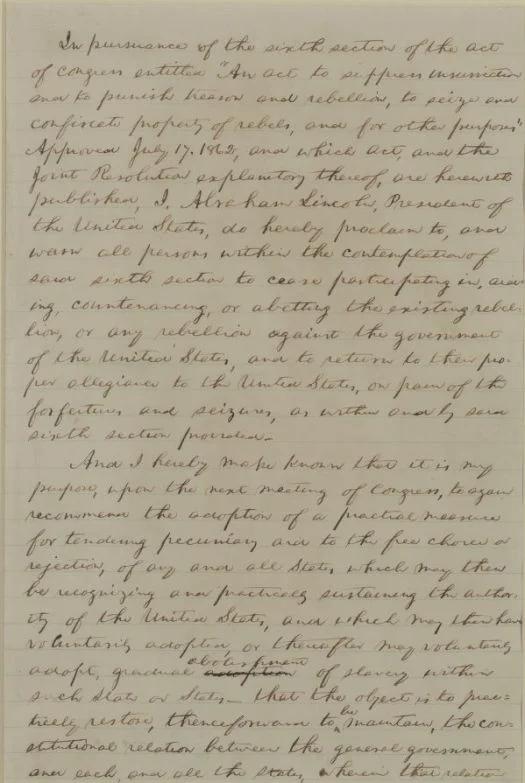 In pursuance of the sixth section of the act
of congress entitled "An act to suppress insurrection
and to punish treason and rebellion, to seize and
confiscate property of rebels, and for other purposes"
Approved July 17. 1862, and which act, and the
Joint Resolution explanatory thereof, are herewith
published, I, Abraham Lincoln, President of
the United States, do hereby proclaim to, and
warn all persons within the contemplation of
said sixth section to cease participating in, aid-
ing, countenancing, or abetting the existing rebel-
lion, or any rebellion against the government
of the United States, and to return to their pro-
per allegiance to the United States, on pain of the
forfeitures and seizures, as within and by said
sixth section provided—
And I hereby make known that it is my
purpose, upon the next meeting of Congress, to again
recommend the adoption of a practical measure
for tendering pecuniary aid to the free choice or
rejection, of any and all States, which may then
be recognizing and practically sustaining the author-
ity of the United States, and which may then have
voluntarily adopted, or thereafter may voluntarily
abolishment
adopt, gradual adoption of slavery within
such State or States— that the object is to prac-
tically restore, thenceforward to be maintain, the con-
stitutional relation between the general government,
and each, and all the states, wherein that relation